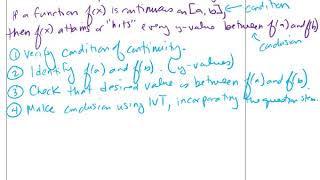 If a function f(x) is continuous on [a, b], ← condition
then f(x) attains or "hits" every y-value between f(a) and f(b)
← conclusion
① Verify condition of continuity.
② Identify f(a) and f(b). (y-values)
③ Check that desired value is between f(a) and f(b).
④ Make conclusion using IVT, incorporating the question stem.